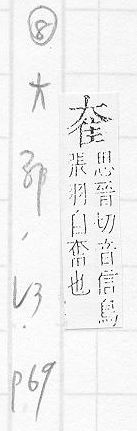 奞
思晉切音信鳥
張羽自奮也
⑧ 大部, 13. p69